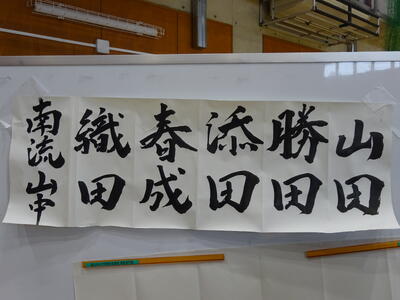 山田
勝田
添田
春成
織田
南流山中